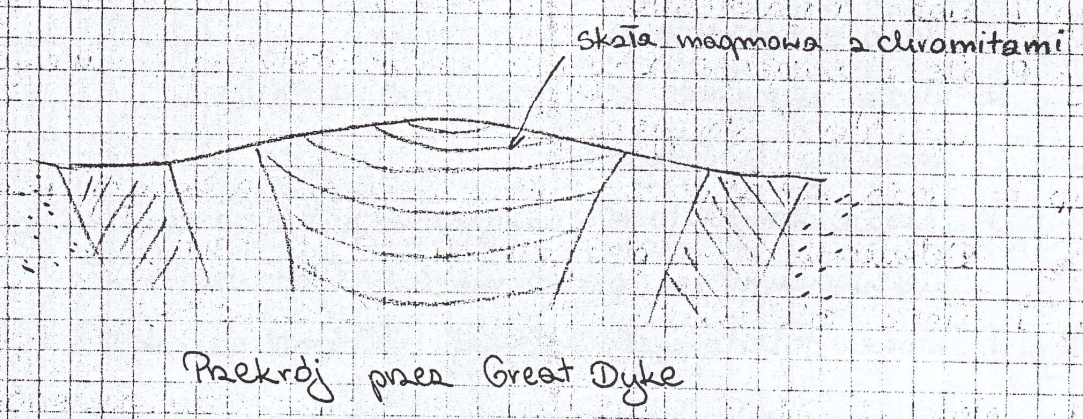 skała magmowa z chromitami
Przekrój przez Great Dyke